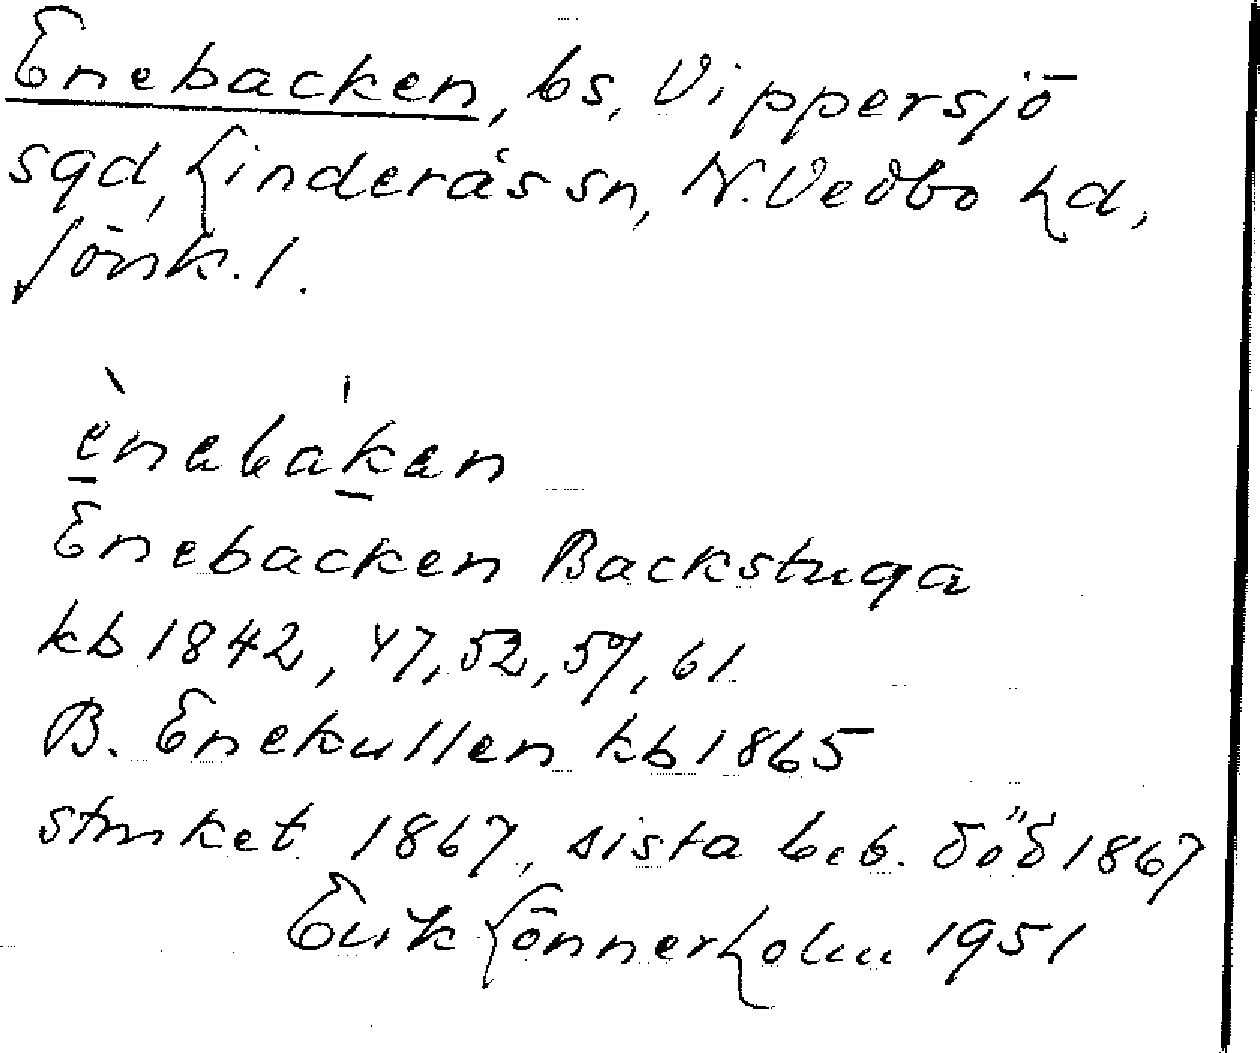 Enebacken, bs, Vippersjö
sgd, Linderås sn, N. Vedbo hd,
Jönk. l.
ènabákan
Enebacken Backstuga
kb 1842, 47, 52, 57, 61
B. Enekullen kb 1865
struket 1867, sista beb. död 1867
Erik Lönnerholm 1951